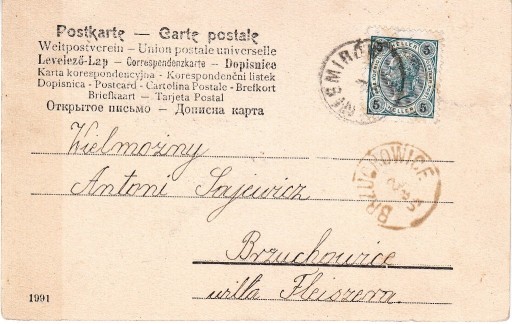 Postkarte — Carte postale
Weltpostverein - Union postale universelle
Levelező-Lap - Correspondenzkarte - Dopisnice
Karta korespondencyjna - Korespondenční listek
Dopisnica - Postcard - Cartolina Postale - Brefkort
Briefkaart — Tarjeta Postal
Открытое письмо — Дописна карта
5 HELLER 5
5 HELLER 5
NIEMIRÓW
BRZUCHOWICE
Wielmożny
Antoni Sajewicz
Brzuchowice
willa Fleiszera.
1991